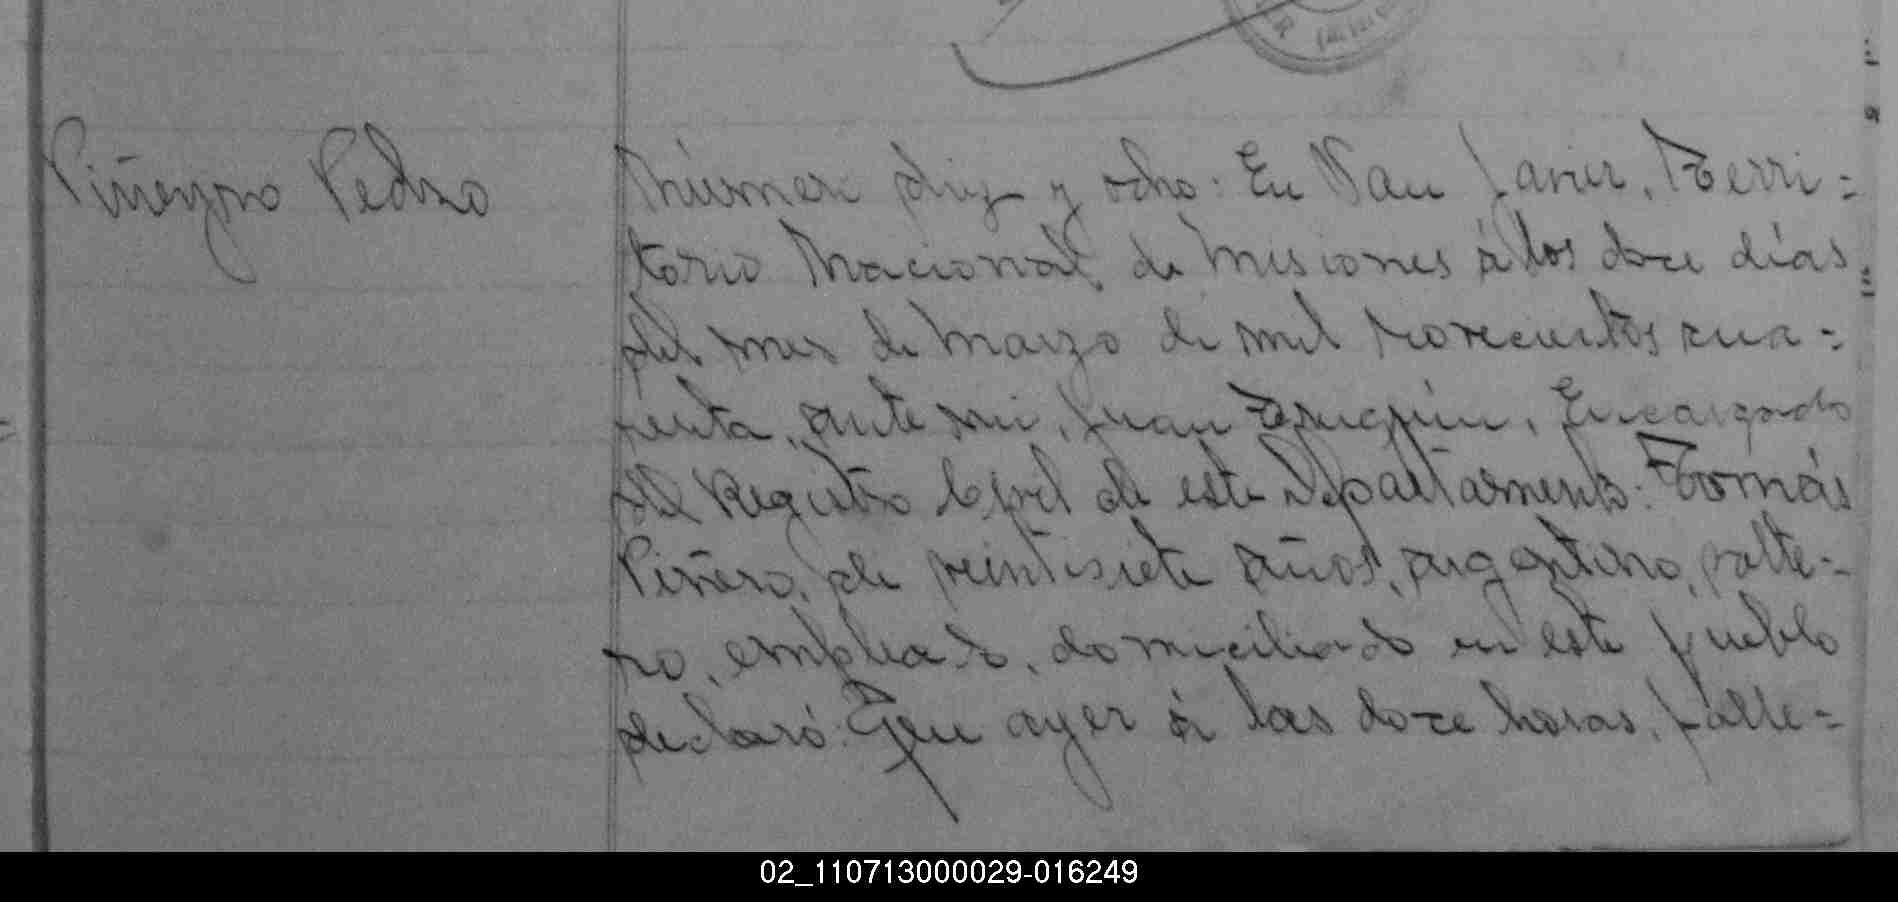 Piñeyro Pedro
Número diez y ocho: En San Javier, Terri=
torio Nacional de Misiones á los doce días
del mes de Marzo de mil novecientos cua=
renta, ante mi, Juan Encargado
del Registro Civil de este Departamento: Tomás
Piñero, de veintisiete años, argentino, solte=
ro, empleado, domiciliado en este pueblo
declaró: Que ayer á las doce horas, falle=
02_110713000029-016249